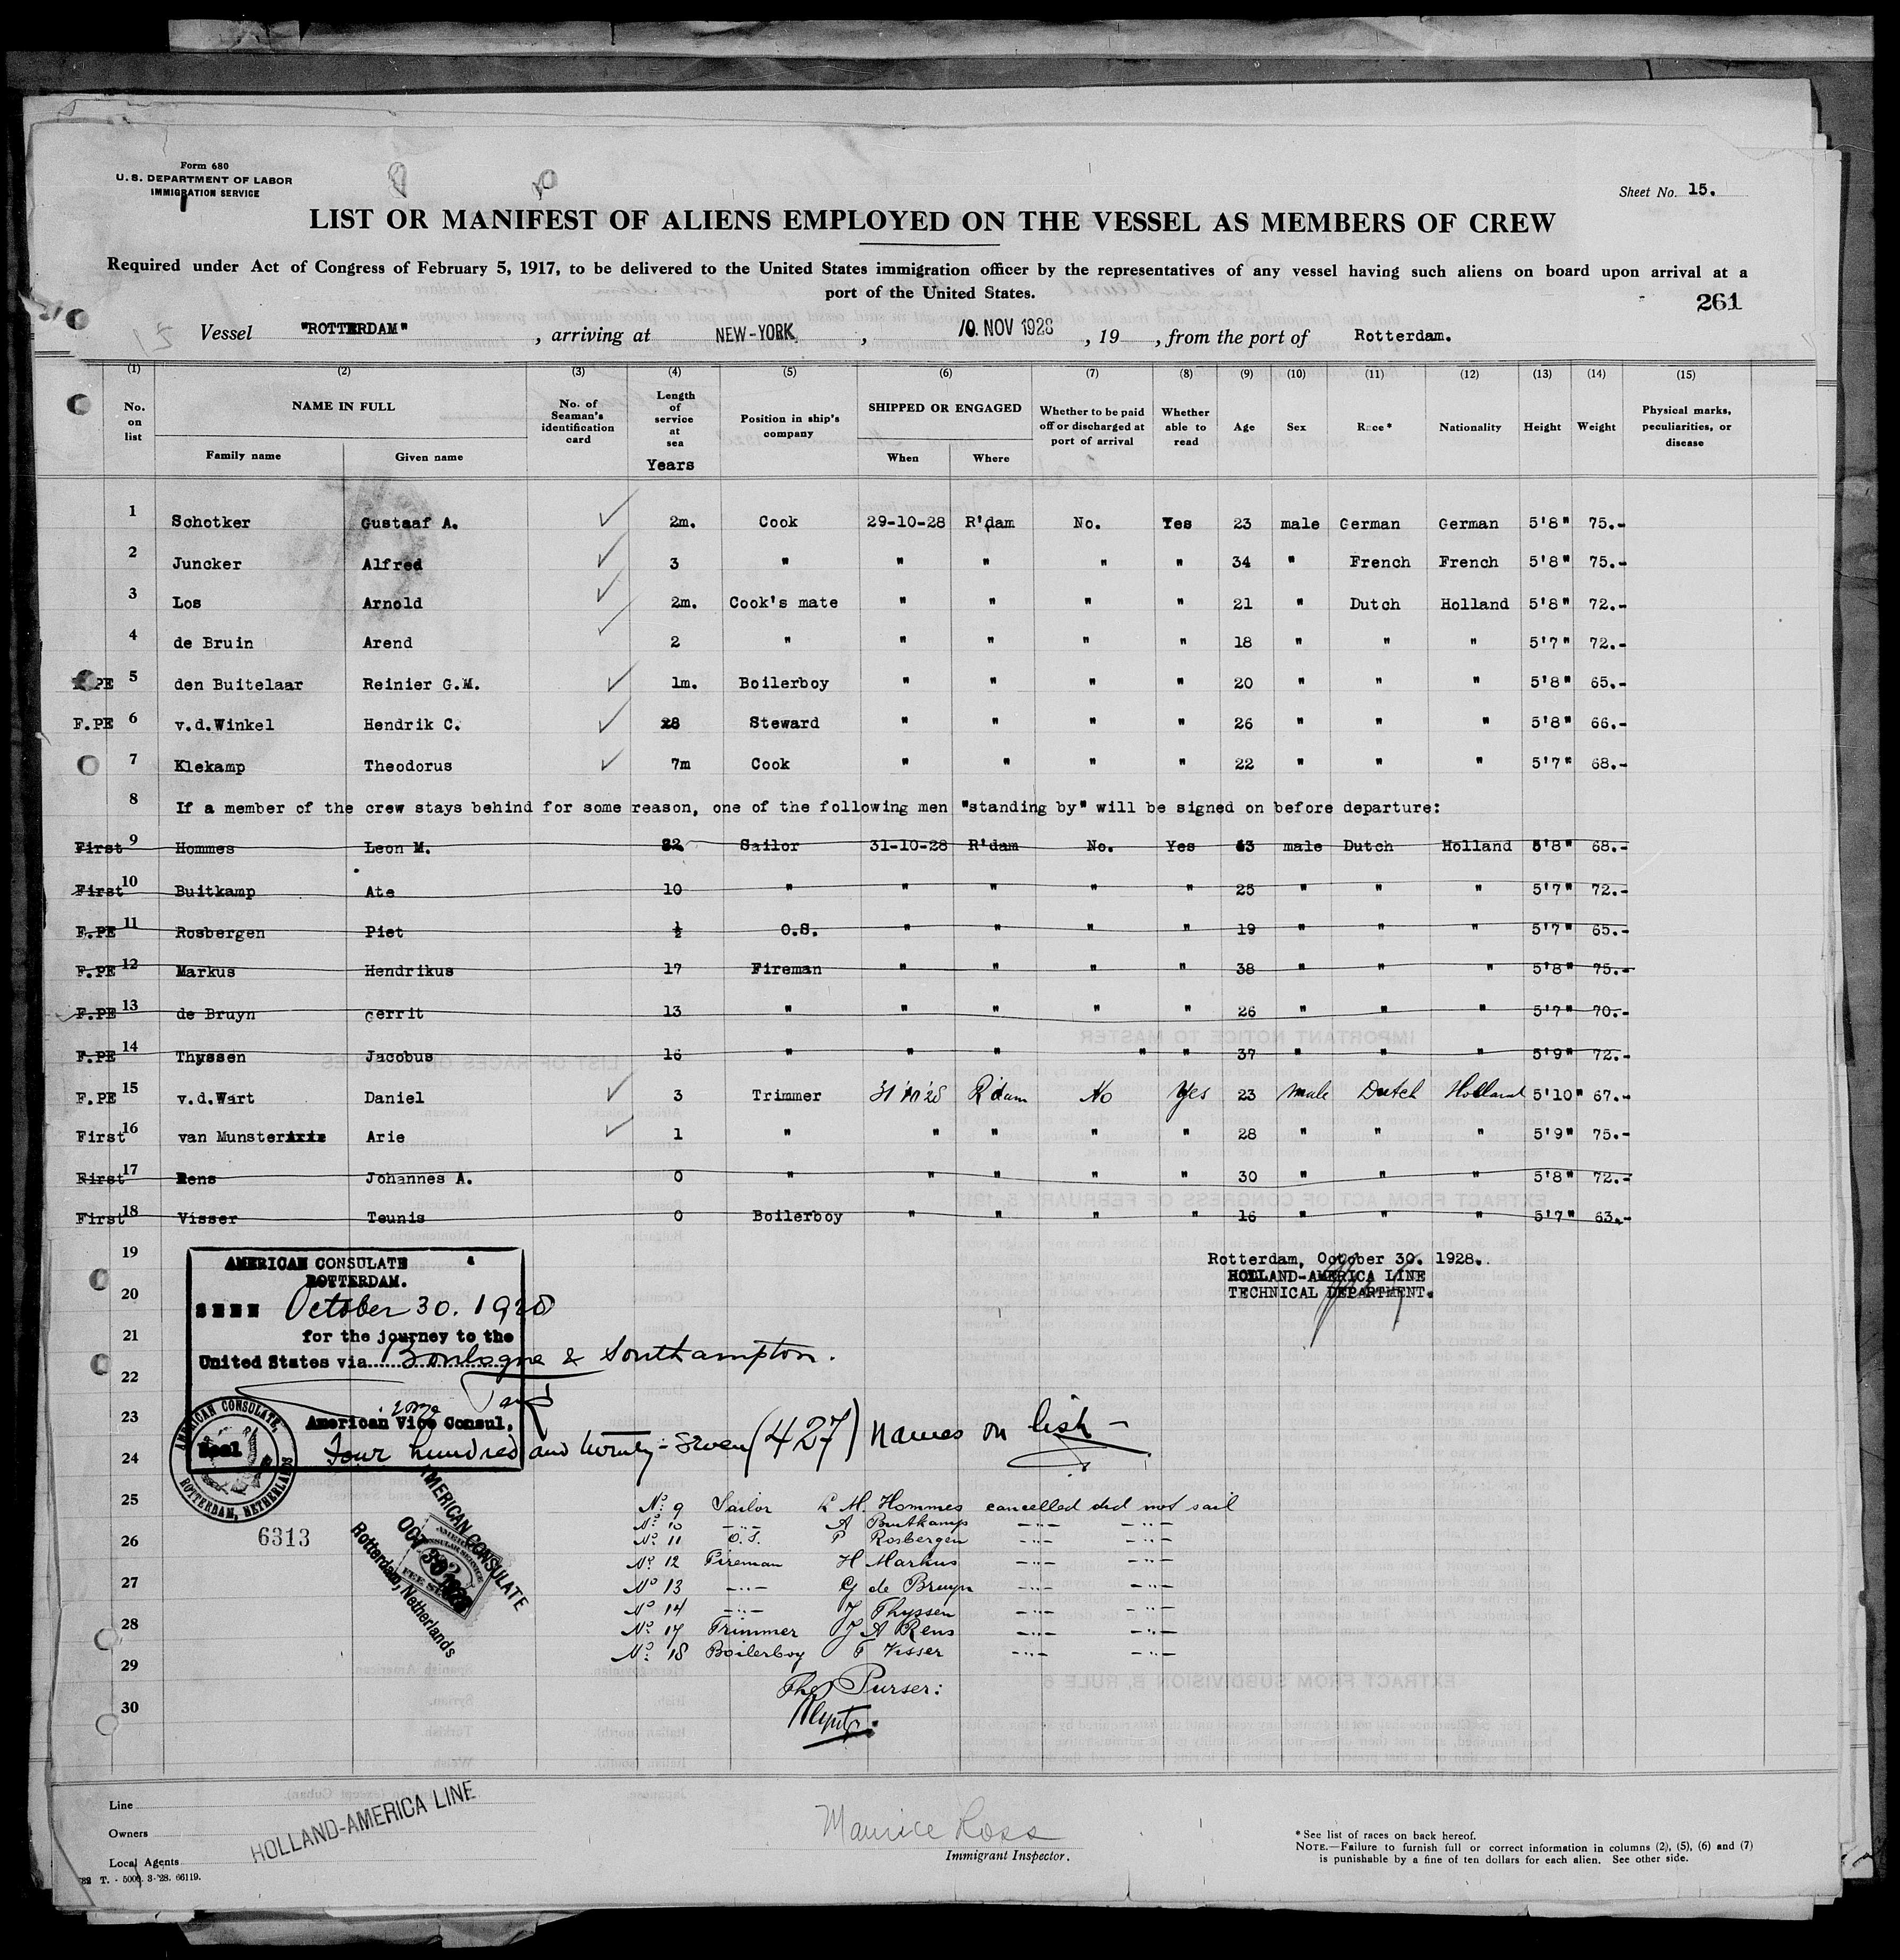 Form 680
U. S. DEPARTMENT OF LABOR
IMMIGRATION SERVICE
Sheet No. 15.
LIST OR MANIFEST OF ALIENS EMPLOYED ON THE VESSEL AS MEMBERS OF CREW
Required under Act of Congress of February 5, 1917, to be delivered to the United States immigration officer by the representatives of any vessel having such aliens on board upon arrival at a
port of the United States.
261
Vessel "ROTTERDAM", arriving at NEW-YORK, 10. NOV 1928, 19 , from the port of Rotterdam.
(1) (2) (3) (4) (5) (6) (7) (8) (9) (10) (11) (12) (13) (14) (15)
No. on list NAME IN FULL Family name Given name No. of Seaman's identification card Length of service at sea Years Position in ship's company SHIPPED OR ENGAGED When Where Whether to be paid off or discharged at port of arrival Whether able to read Age Sex Race* Nationality Height Weight Physical marks, peculiarities, or disease
1 Schotker Gustaaf A. ✓ 2m. Cook 29-10-28 R'dam No. Yes 23 male German German 5'8" 75.-
2 Juncker Alfred ✓ 3 " " " " " 34 " French French 5'8" 75.-
3 Los Arnold ✓ 2m. Cook's mate " " " " 21 " Dutch Holland 5'8" 72.-
4 de Bruin Arend ✓ 2 " " " " " 18 " " " 5'7" 72.-
F.PE 5 den Buitelaar Reinier G.M. ✓ 1m. Boilerboy " " " " 20 " " " 5'8" 65.-
F.PE 6 v.d.Winkel Hendrik C. ✓ Steward " " " " 26 " " " 5'8" 66.-
7 Klekamp Theodorus ✓ 7m Cook " " " " 22 " " " 5'7" 68.-
8 If a member of the crew stays behind for some reason, one of the following men "standing by" will be signed on before departure:
First 9 Hommes Leon M. Sailor 31-10-28 R'dam No. Yes male Dutch Holland 5'8" 68.-
First 10 Buitkamp Ate 10 " " " " " 25 " " " 5'7" 72.-
F.PE 11 Rosbergen Piet ½ O.S. " " " " 19 " " " 5'7" 65.-
F.PE 12 Markus Hendrikus 17 Fireman " " " " 38 " " " 5'8" 75.-
F.PE 13 de Bruyn Gerrit 13 " " " " " 26 " " " 5'7" 70.-
F.PE 14 Thyssen Jacobus 16 " " " " " 37 " " " 5'9" 72.-
F.PE 15 v.d.Wart Daniel ✓ 3 Trimmer 31'10'28 R'dam No Yes 23 male Dutch Holland 5'10" 67.-
First 16 van Munster Arie ✓ 1 " " " " " 28 " " " 5'9" 75.-
First 17 Rens Johannes A. 0 " " " " " 30 " " " 5'8" 72.-
First 18 Visser Teunis 0 Boilerboy " " " " 16 " " " 5'7" 63.-
19
20
21
22
23
24
25
26
27
28
29
30
AMERICAN CONSULATE
ROTTERDAM.
SEEN October 30. 1928
for the journey to the
United States via Boulogne & Southampton.
American Vice Consul.
Seal
AMERICAN CONSULATE, ROTTERDAM, NETHERLANDS
Four hundred and twenty-seven (427) names on list -
Rotterdam, October 30. 1928.
HOLLAND-AMERICA LINE
TECHNICAL DEPARTMENT.
6313
AMERICAN CONSULATE
OCT 30 1928
Rotterdam, Netherlands
No. 9 Sailor L M. Hommes cancelled did not sail
No. 10 -"- A Buitkamp -"- -"-
No. 11 O.S. P Rosbergen -"- -"-
No. 12 Fireman H Markus -"- -"-
No. 13 -"- G de Bruyn -"- -"-
No. 14 -"- J Thyssen -"- -"-
No. 17 Trimmer J A Rens -"- -"-
No. 18 Boilerboy T Visser -"- -"-
The Purser:
Line
Owners
Local Agents
HOLLAND-AMERICA LINE
Maurice Ross
Immigrant Inspector.
* See list of races on back hereof.
NOTE.—Failure to furnish full or correct information in columns (2), (5), (6) and (7)
is punishable by a fine of ten dollars for each alien. See other side.
T. - 5000. 3-'28. 66119.